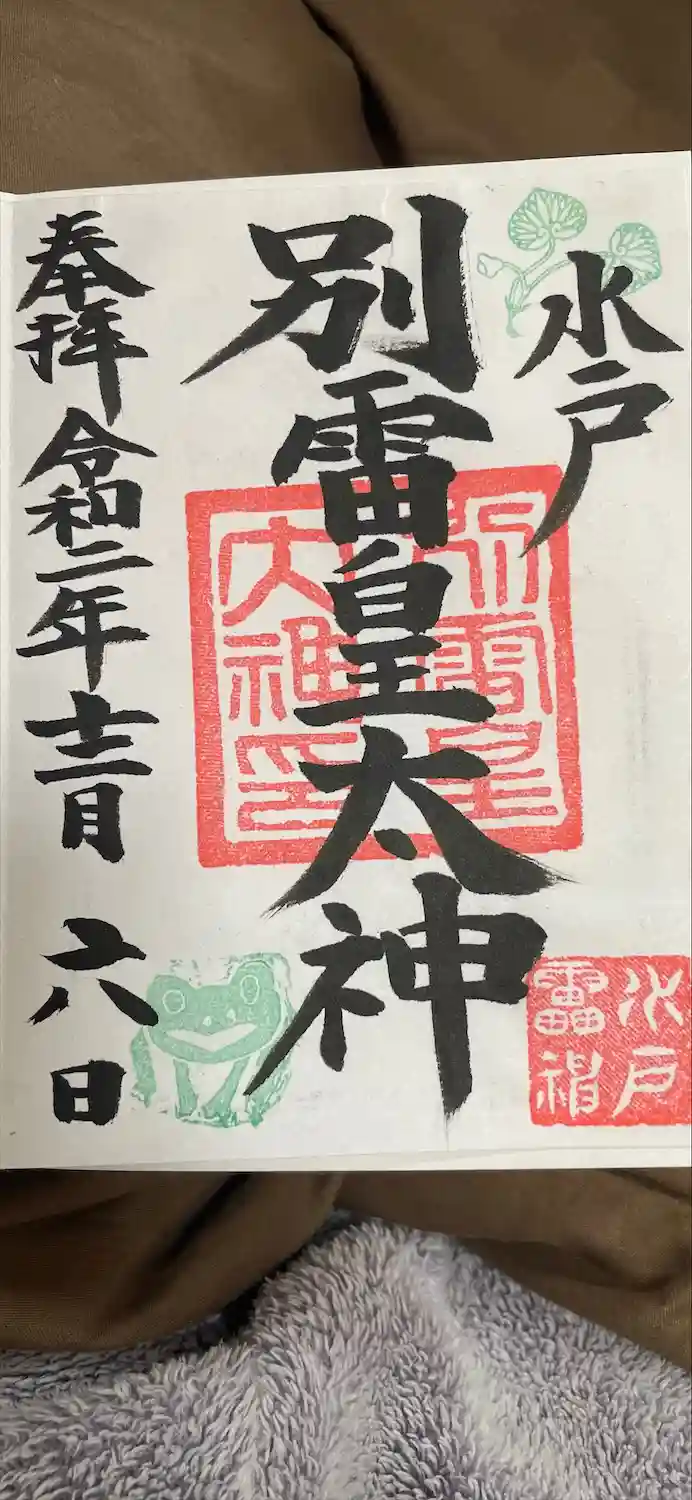 水戸
別雷皇太神
奉拝 令和二年十二月 六日
別雷皇
大神印
水戸
雷神